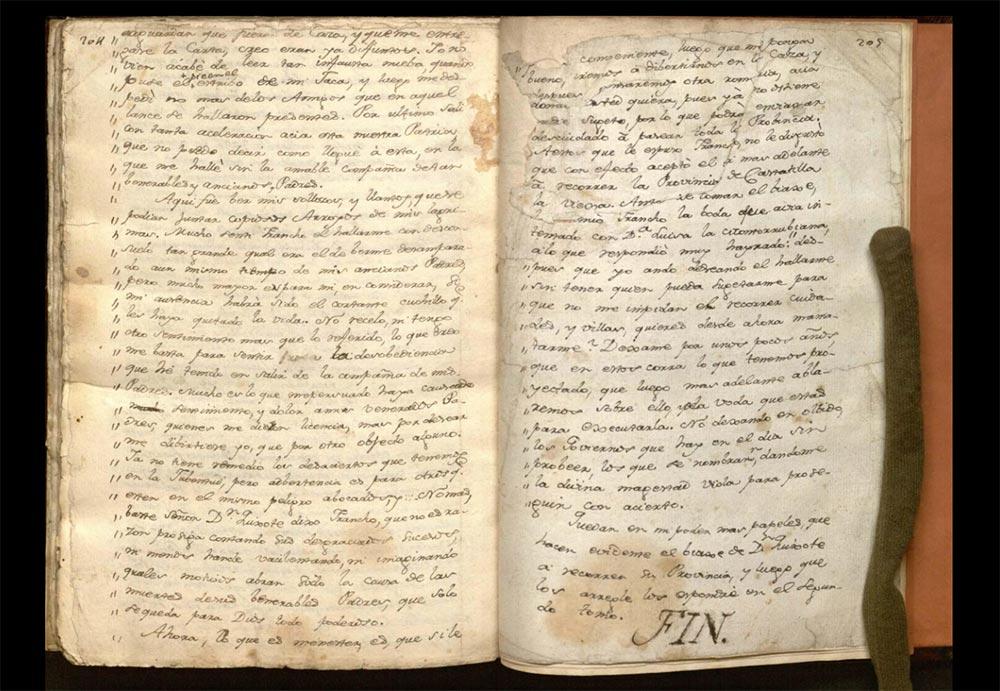 204
aguardian que fuera de Caza, y que me entre-
gase la Carta, creo eran ya difuntos. Yo no
bien acabé de leer tan infausta nueva quando
puse el pie en el estribo de mi Jaca, y luego me des-
pedí no mas de los Amigos que en aquel
lance se hallaron presentes. Por ultimo salí
con tanta aceleracion acia esta nuestra Patria,
que no puedo decir como llegué à esta, en la
que me hallè sin la amable compañia de tan
benerables y ancianos Padres.
Aqui fue ber mis sollozos, y llantos, que se
podian juntar copiosos Arroyos de mis lagri-
mas. Mucho senti Francho el hallarme con descon-
suelo tan grande qual era el de berme desampara-
do à un mismo tiempo de mis ancianos Padres,
pero mucho mayor es para mi en considerar, si
mi ausencia habrà sido el cortante cuchillo q.
les haya quitado la vida. No recelo, ni tengo
otro sentimiento mas que lo referido, lo que creo
me basta para sentir la desobediencia
que hé tenido en salir de la compañia de mis
Padres. Mucho es lo que me persuado haya causado
sentimiento, y dolor à mis venerados Pa-
dres, quienes me dieron licencia, mas por desear
me dibirtiese yo, que por otro objecto alguno.
Ya no tiene remedio los desaciertos que tenemos
en la Jubentud, pero adbertencia es para otros q.
esten en el mismo peligro abocados, y No mas,
baste Señor Dn. Quixote dixo Francho, que no es ra-
zon prosiga contando sus desgraciados sucesos,
ni menos hande vacilando, ni imaginando
quales motivos abran sido la causa de las
muertes de sus benerables Padres, que solo
se queda para Dios todo poderoso.
Ahora, lo que es menester, es que si le
205
comeniente, luego que me pongan
bueno, iremos à dibertirnos en la Caza, y
despues tomaremos otra romeria, acia
donde usted quiera, pues yà no tiene
Sugeto, por lo que podrà
descuidado à pasear toda la Provincia.
Antes que le espuso Francho, no le disgusto
que con efecto aceptò el ir mas adelante
à recorrer la Provincia de Castilla
la Vieja. Antes de tomar el biaxe,
Francho la boda que avia in-
tentado con D.ª Luisa la citomorrubiana,
à lo que respondiò muy hayrado: des-
pues que yo ando deseando el hallarme
sin tener quien pueda sugetarme para
que no me impidan el recorrer cuida-
des, y villas, quieres desde ahora mania-
tarme? Dexame por unos pocos años,
que en estos corra lo que tenemos pro-
yectado, que luego mas adelante abla-
remos sobre ello, y la voda que estas
para executarla. No dexando en olbido
los Goviernos que hay en el dia sin
probeer, los que se nombraran, dandome
la divina magestad vida para prose-
guir con acierto.
Quedan en mi poder mas papeles, que
hacen evidente el biaxe de Dn. Quixote
à recorrer su Provincia, y luego que
los arregle los espondrè en el segun-
do tomo.
FIN.